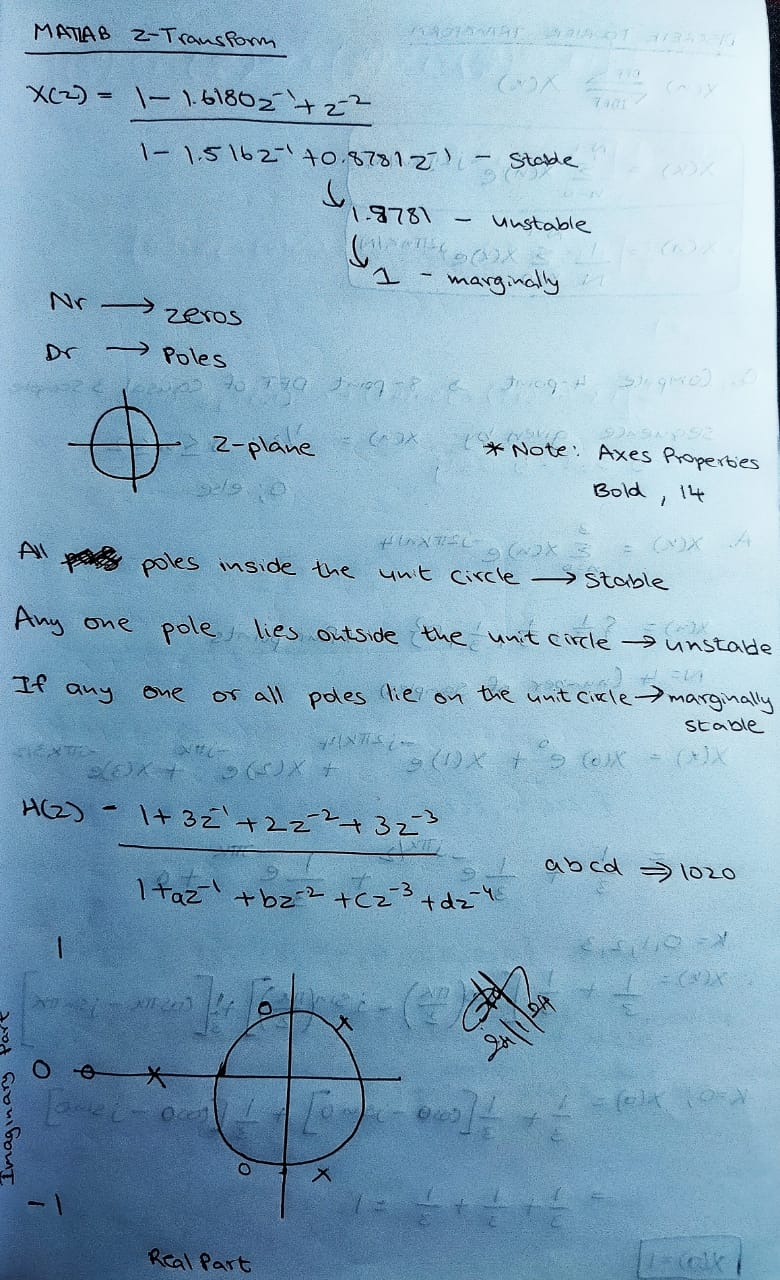 MATLAB Z-Transform
X(z) = 1 - 1.6180z⁻¹ + z⁻²
1 - 1.516z⁻¹ + 0.8781z⁻¹ - Stable
1.8781 - unstable
1 - marginally
Nr → zeros
Dr → Poles
Z-plane
* Note: Axes Properties
Bold, 14
All poles inside the unit circle → stable
Any one pole lies outside the unit circle → unstable
If any one or all poles lie on the unit circle → marginally
stable
H(z) - 1 + 3z⁻¹ + 2z⁻² + 3z⁻³
1 + az⁻¹ + bz⁻² + cz⁻³ + dz⁻⁴
abcd ⇒ 1020
1
0
-1
Imaginary Part
Real Part